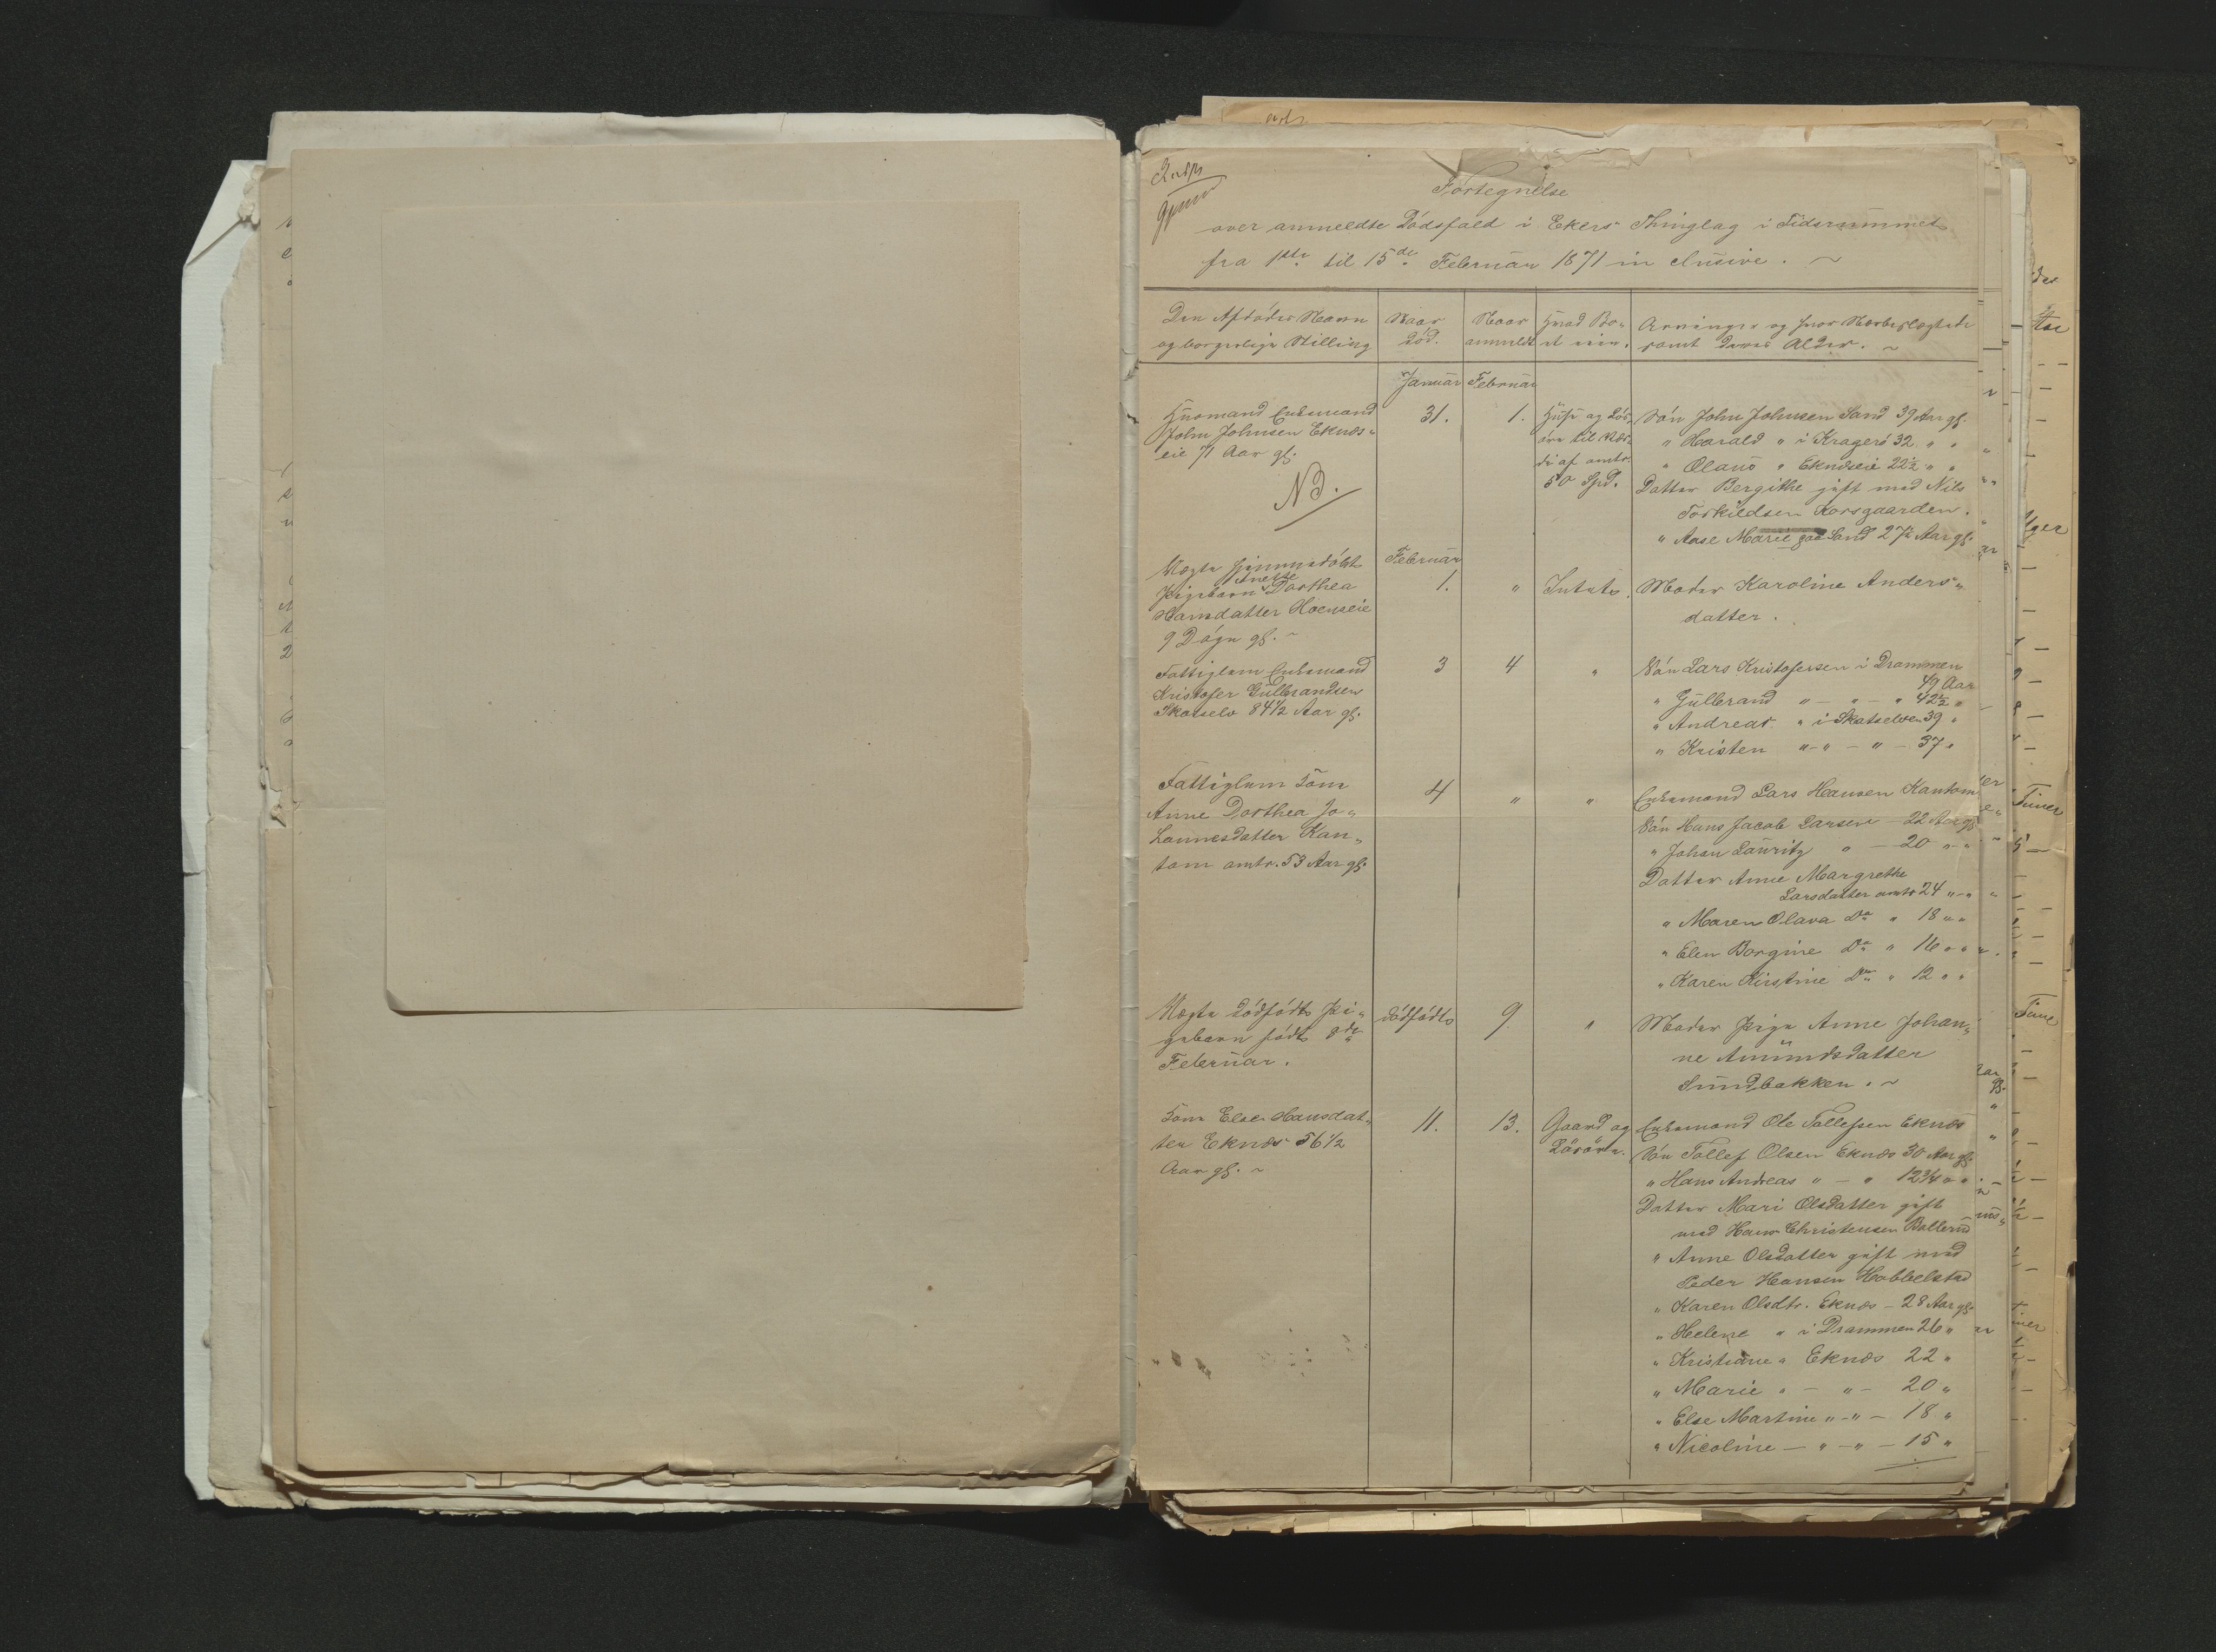 Fortegnelse
over anmeldte Dödsfald i Ekers Thinglag i Tidsrummet
fra 1ste til 15de Februar 1871 inclusive.
Den Afdödes Navn
og borgerlige Stilling
Naar
död.
Naar
anmeldt
Hvad Bo-
et eier.
Arvinger og hvor Nærbeslægtede
samt deres Alder.
Januar
Februar
Husmand Enkemand
John Johnsen Eknæs-
eie 71 Aar gl.
NB.
31.
1.
Huse og Lös-
öre til Vær-
di af omtr.
50 Spd.
Sön John Johnsen Sand 39 Aar gl.
" Harald " i Krageró 32 " "
" Olaus " Eknæseie 22½ " "
Datter Bergithe gift med Nils
Torkildsen Korsgaarden.
" Aase Marie Sand 27½ Aar gl.
Februar
Uægte hjemmedöbt
Pigebarn Dorthea
Hansdatter Hoenseie
9 Dögn gl.
1.
"
Intet.
Moder Karoline Anders-
datter.
Fattiglem Enkemand
Kristofer Gulbrandsen
Skotselv 84½ Aar gl.
3
4
"
Sön Lars Kristofersen i Drammen
49 Aar
" Gulbrand " — " — " 42½ "
" Andreas " i Skotselven 39 "
" Kristen " - " — " — 37 "
Fattiglem Kone
Anne Dorthea Jo-
hannesdatter Kan-
tom omtr. 53 Aar gl.
4
"
"
Enkemand Lars Hansen Kantom
Sön Hans Jacob Larsen — 22 Aar gl
" Johan Lauritz " — 20 " "
Datter Anne Margrethe
Larsdatter omtr 24 " - "
" Maren Olava Do " 18 " "
" Elen Borgine Do " 16 " "
" Karen Kirstine Do " 12 " "
Uægte dödfödt Pi-
gebarn födt 8de
Februar.
dödfödt
9
"
Moder Pige Anne Johan-
ne Amundsdatter
Sundbakken.
Kone Else Hansdat-
ter Eknæs 56½
Aar gl.
11.
13.
Gaard og
Lösöre.
Enkemand Ole Tollefsen Eknæs
Sön Tollef Olsen Eknæs 30 Aar gl.
" Hans Andreas " — " 12¾ " "
Datter Mari Olsdatter gift
med Hans Christensen Bollerud
" Anne Olsdatter gift med
Peder Hansen Hobbelstad
" Karen Olsdtr. Eknæs — 28 Aar gl.
" Helene " i Drammen 26 "
" Kristiane " Eknæs 22 "
" Marie " — " — 20 "
" Else Martine " - " — 18 "
" Nicoline — " — " — 15 "